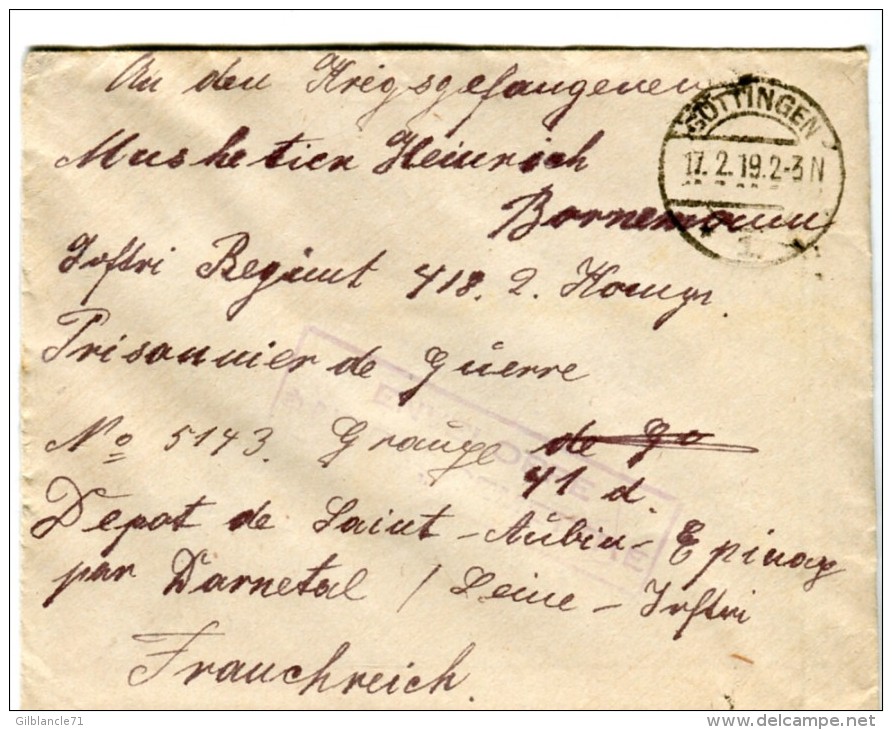 An den Kriegsgefangenen
Musketier Heinrich
Bornemann
Inftri Regimt 418. 2. Kompr.
Prisonnier de Guerre
No 5143. Graüge de Go
41 d.
Depot de Saint-Aübin-Epinay
par Darnetal / Seine-Inftri
Franchreich.
GÖTTINGEN
17.2.19.2-3N
1.
Gilblancle71
delcampe.net